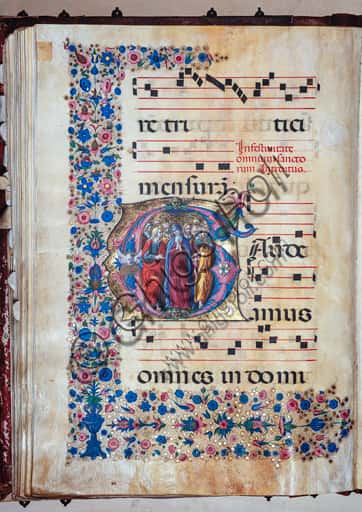 re tri tici
In festivitate
omnium sancto
rum
mensuri
Aude
amus
omnes in domi